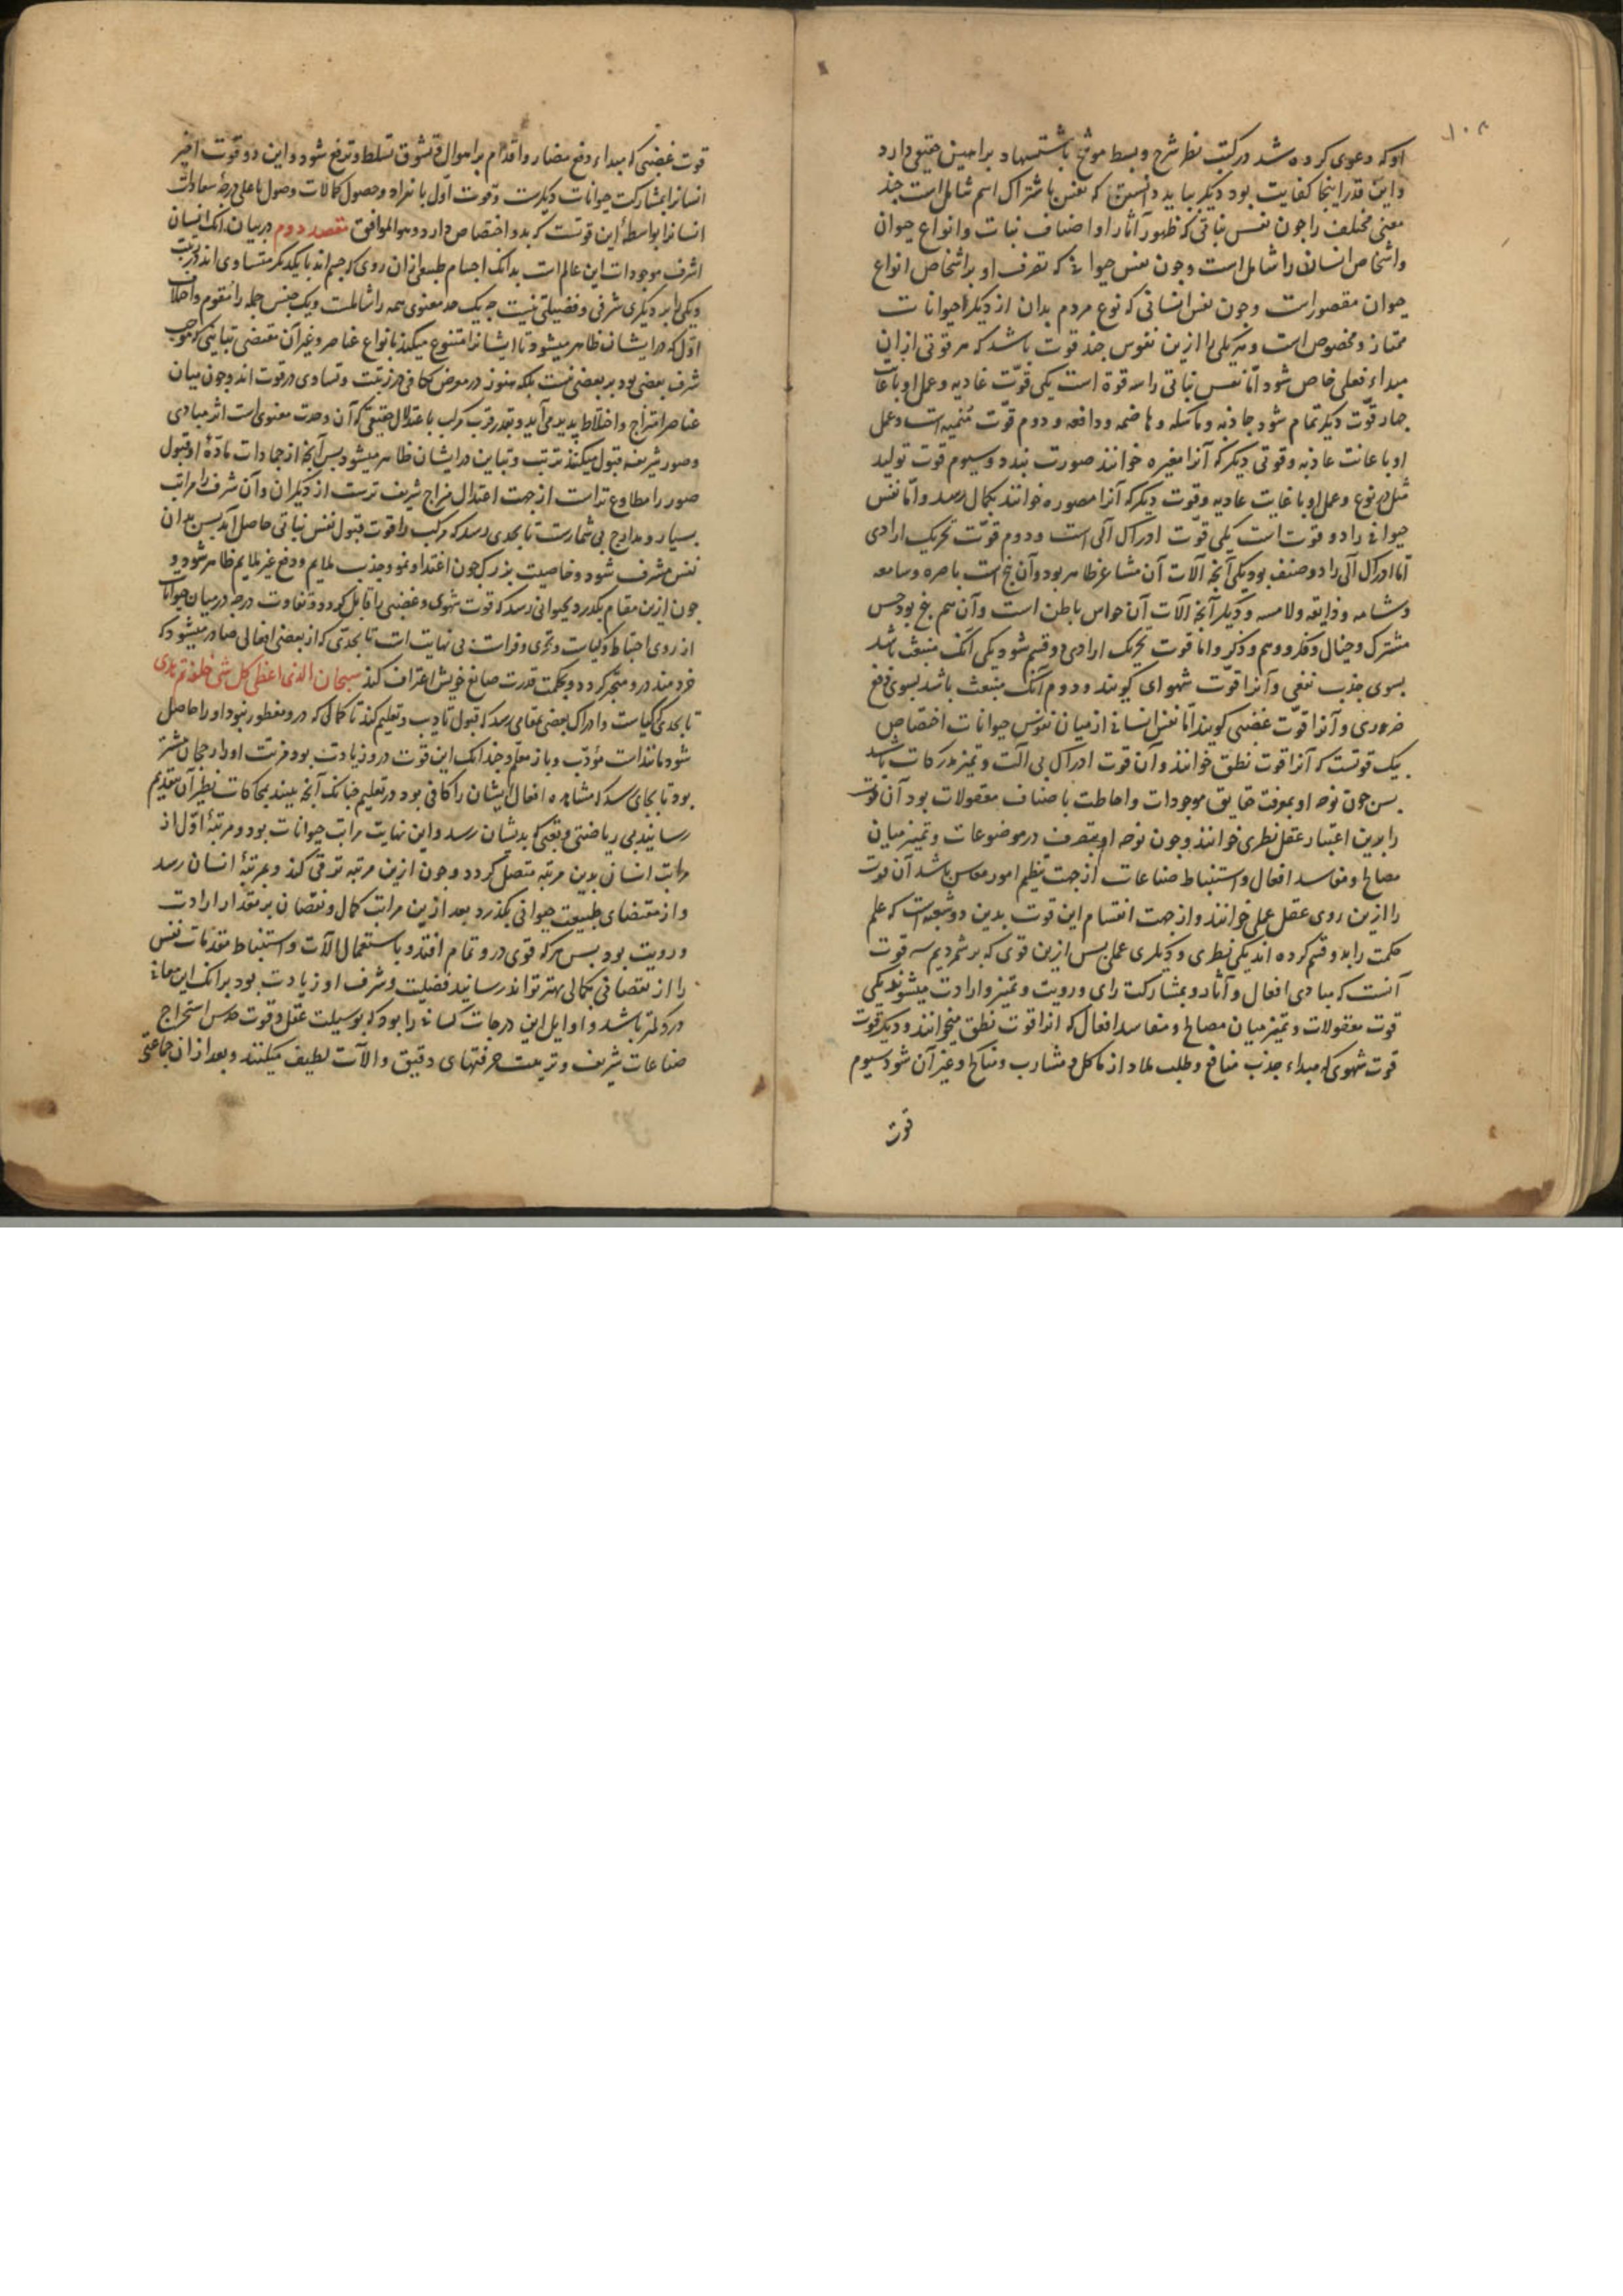 ۱۰۸
او که دعوی کرده شد در کتب نظر شرح و بسط موشح باستشهاد براهین حقیقی دارد
و این قدر اینجا کفایت بود دیکر بباید دانستن که نفس باشتراک اسم شامل است چند
معنی مختلف را جون نفس نباتی که ظهور آثار او اصناف نبات و انواع حیوان
و اشخاص انسان را شامل است و جون نفس حیوانی که تصرف او بر اشخاص انواع
حیوان مقصور است و جون نفس انسانی که نوع مردم بدان از دیکر حیوانات
ممتاز و مخصوص است و هر یکی را ازین نفوس جند قوت باشد که هر قوتی از ان
مبداء فعلی خاص شود اما نفس نباتی را سه قوة است یکی قوّت غادیه و عمل او باعانت
جهار قوّت دیکر تمام شود جاذبه و ماسکه و هاضمه و دافعه و دوم قوّت منمیه است و عمل
او باعانت غاذیه و قوتی دیکر که آنرا مغیره خوانند صورت بندد و سیوم قوت تولید
مثل در نوع و عمل او باعانت غادیه و قوت دیکر که آنرا مصوره خوانند بکمال رسد و اما نفس
حیوانی را دو قوت است یکی قوّت ادراک آلی است و دوم قوّت تحریک ارادی
اما ادراک آلی را دو صنف بود یکی آنجه آلات آن مشاعر ظاهر بود و آن پنج است باصره و سامعه
و شامه و ذایقه و لامسه و دیکر آنجه آلات آن حواس باطن است و آن هم پنج بود حس
مشترک و خیال و فکر و وهم و ذکر و اما قوت تحریک ارادی دو قسم شود یکی آنک منبعث باشد
بسوی جذب نفعی و آنرا قوّت شهوای کویند و دوم آنک منبعث باشد بسوی دفع
ضروری و آنرا قوّت غضبی کویند اما نفس انسانی از میان نفوس حیوانات اختصاص
بیک قوتست که آنرا قوت نطق خوانند و آن قوت ادراک بی آلت و تمیز مدرکات باشد
بس جون توجه او بمعرفت حقایق موجودات و احاطت باصناف معقولات بود آن قوت
را بدین اعتبار عقل نظری خوانند و جون توجه او بتصرف در موضوعات و تمییز میان
مصالح و مفاسد افعال و استنباط صناعات از جهت تنظیم امور معاش باشد آن قوت
را ازین روی عقل عملی خوانند و از جهت انقسام این قوت بدین دو شعبه است که علم
حکمت را بدو قسم کرده اند یکی نظری و دیکری عملی بس ازین قوی که بر شمردیم سه قوت
آنست که مبادی افعال و آثار و بمشارکت رای و رویت و تمیز و ارادت میشوند یکی
قوت معقولات و تمیز میان مصالح و مفاسد افعال که انرا قوت نطق میخوانند و دیکر قوت
قوت شهوی که مبداء جذب منافع و طلب ملاد از ماکل و مشارب و مناکح و غیر آن شود سیوم
قوت
قوت غضبی که مبداء دفع مضار و اقدام بر اهوال و تشوق تسلط و ترفع شود و این دو قوت اخیر
انسانرا بمشارکت حیوانات دیکرست و قوت اول بانفراد و حصول کمالات و وصول باعلی درجۀ سعادات
انسانرا بواسطۀ این قوتست که بدو اختصاص دارد و هو الموافق مقصد دوم در بیان آنک انسان
اشرف موجودات این عالم است بدانک اجسام طبیعی از ان روی که جسم اند با یکدیکر متساوی اند در رتبت
و یکی را بر دیکری شرفی و فضیلتی نیست جه یک حد معنوی همه را شاملست و یک جنس جمله را مقوم و اختلاف
اول که در ایشان ظاهر میشود تا ایشانرا متنوع میکند بانواع عناصر و غیر آن مقتضی تباینی که موجب
شرف بعضی بود بر بعضی نیست بلکه هنوز در معرض تکافی در رتبت و تساوی در قوت اند و جون میان
عناصر امتزاج و اختلاط پدید می آید و بقدر قرب مرکب باعتدال حقیقی که آن وحدت معنوی است اثر مبادی
و صور شریفه قبول میکنند ترتب و تباین در ایشان ظاهر میشود بس آنجه از جمادات مادۀ او قبول
صور را مطاوع تر است از جهت اعتدال مزاج شریف ترست از دیکران و آن شرف را مراتب
بسیار و مدارج بی شمارست تا بحدی رسد که مرکب را قوت قبول نفس نباتی حاصل آید بس بدان
نفس مشرف شود و خاصیت بزرک جون اغتدا و نمو و جذب ملایم و دفع غیر ملایم ظاهر شود و
جون ازین مقام بکدرد بحیوانی رسد که قوت شهوی و غضبی را قابل کردد و تفاوت درجه در میان حیوانات
از روی احتیاط و کیاست و تحری و فراست بی نهایت است تا بحدی که از بعضی افعالی صادر میشود که
خردمند درو متحیر کردد و بحکمت قدرت صانع خویش اعتراف کند سبحان الذی اعطی کل شئ خلقه ثم هدی
تا بحدی کیاست و ادراک بعضی بمقامی رسد که قبول تادیب و تعلیم کند تا کمالی که درو مفطور نبود او را حاصل
شود مانند است مؤدّب و باز معلّم و جندانک این قوت درو زیادت بود مزیت او را رجحان بیشتر
بود تا بجای رسد که مشاهده افعال ایشان را کافی بود در تعلیم جنانک آنجه بیند بمحاکات نظیر آن بتقدیم
رسانند بی ریاضتی و تعبی که بدیشان رسد و این نهایت مراتب حیوانات بود و مرتبۀ اول از
مراتب انسان بدین مرتبه متصل کردد و جون ازین مرتبه ترقی کند و بمرتبۀ انسان رسد
و از مقتضای طبیعت حیوانی بکذرد بعد ازین مراتب کمال و نقصان بر مقدار ارادت
و رویت بود بس هر که قوی درو تمام افتد و باستعمال آلات و استنباط مقدمات نفس
را از نقصانی بکمالی بهتر تواند رسانید فضیلت و شرف او زیادت بود بر آنک این معانی
درو کمتر باشد و اوایل این درجات کسانی را بود که بوسیلت عقل و قوت حدس استخراج
صناعات شریف و ترتیب حرفتهای دقیق و الآت لطیف میکنند و بعد از ان جماعتی